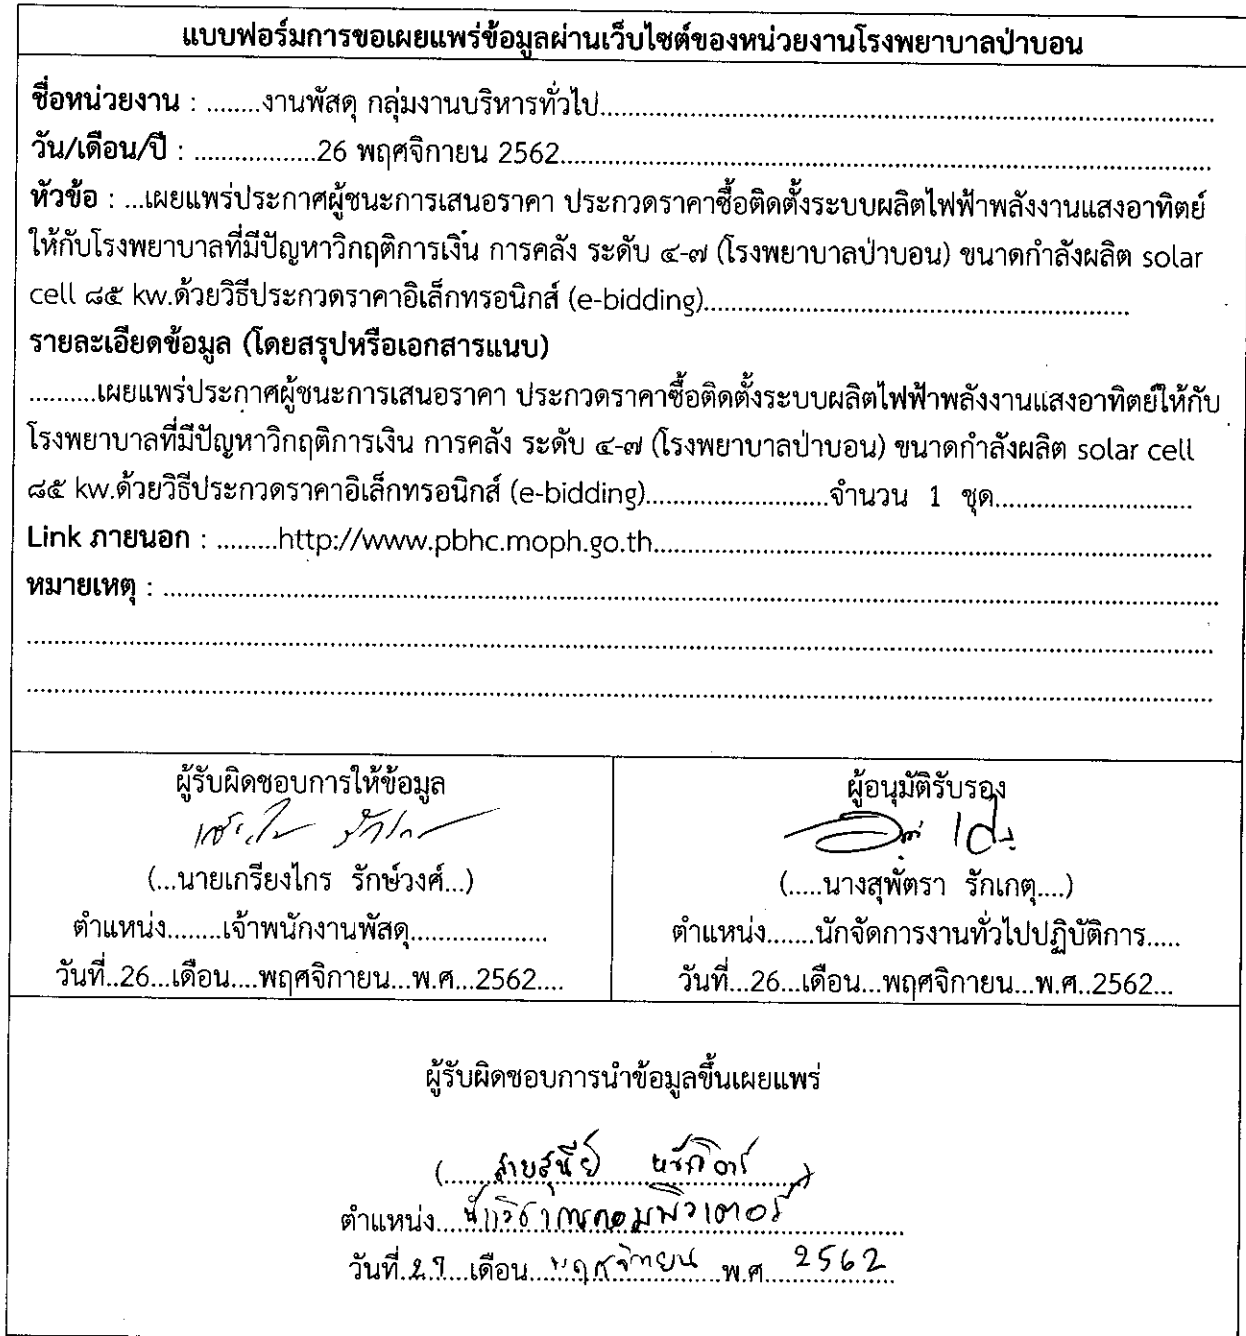 แบบฟอร์มการขอเผยแพร่ข้อมูลผ่านเว็บไซต์ของหน่วยงานโรงพยาบาลป่าบอน
ชื่อหน่วยงาน : ........งานพัสดุ กลุ่มงานบริหารทั่วไป...........................................................................................
วัน/เดือน/ปี : ..................26 พฤศจิกายน 2562.................................................................................................
หัวข้อ : ...เผยแพร่ประกาศผู้ชนะการเสนอราคา ประกวดราคาซื้อติดตั้งระบบผลิตไฟฟ้าพลังงานแสงอาทิตย์
ให้กับโรงพยาบาลที่มีปัญหาวิกฤติการเงิน การคลัง ระดับ ๔-๗ (โรงพยาบาลป่าบอน) ขนาดกำลังผลิต solar
cell ๘๕ kw.ด้วยวิธีประกวดราคาอิเล็กทรอนิกส์ (e-bidding)...............................................................
รายละเอียดข้อมูล (โดยสรุปหรือเอกสารแนบ)
..........เผยแพร่ประกาศผู้ชนะการเสนอราคา ประกวดราคาซื้อติดตั้งระบบผลิตไฟฟ้าพลังงานแสงอาทิตย์ให้กับ
โรงพยาบาลที่มีปัญหาวิกฤติการเงิน การคลัง ระดับ ๔-๗ (โรงพยาบาลป่าบอน) ขนาดกำลังผลิต solar cell
๘๕ kw.ด้วยวิธีประกวดราคาอิเล็กทรอนิกส์ (e-bidding)...........................จำนวน 1 ชุด.............................
Link ภายนอก : .........http://www.pbhc.moph.go.th...................................................................................
หมายเหตุ : ............................................................................................................................................................
ผู้รับผิดชอบการให้ข้อมูล
(...นายเกรียงไกร รักษ์วงศ์...)
ตำแหน่ง........เจ้าพนักงานพัสดุ....................
วันที่..26...เดือน....พฤศจิกายน...พ.ศ...2562....
ผู้อนุมัติรับรอง
(.....นางสุพัตรา รักเกตุ....)
ตำแหน่ง.......นักจัดการงานทั่วไปปฏิบัติการ.....
วันที่...26...เดือน...พฤศจิกายน...พ.ศ..2562...
ผู้รับผิดชอบการนำข้อมูลขึ้นเผยแพร่
ตำแหน่ง....นักวิชาการคอมพิวเตอร์
วันที่.27...เดือน...พฤศจิกายน...พ.ศ...2562